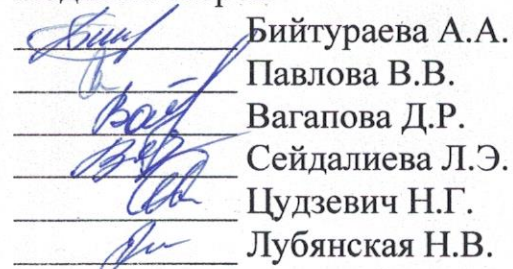 Бийтураева А.А.
Павлова В.В.
Вагапова Д.Р.
Сейдалиева Л.Э.
Цудзевич Н.Г.
Лубянская Н.В.